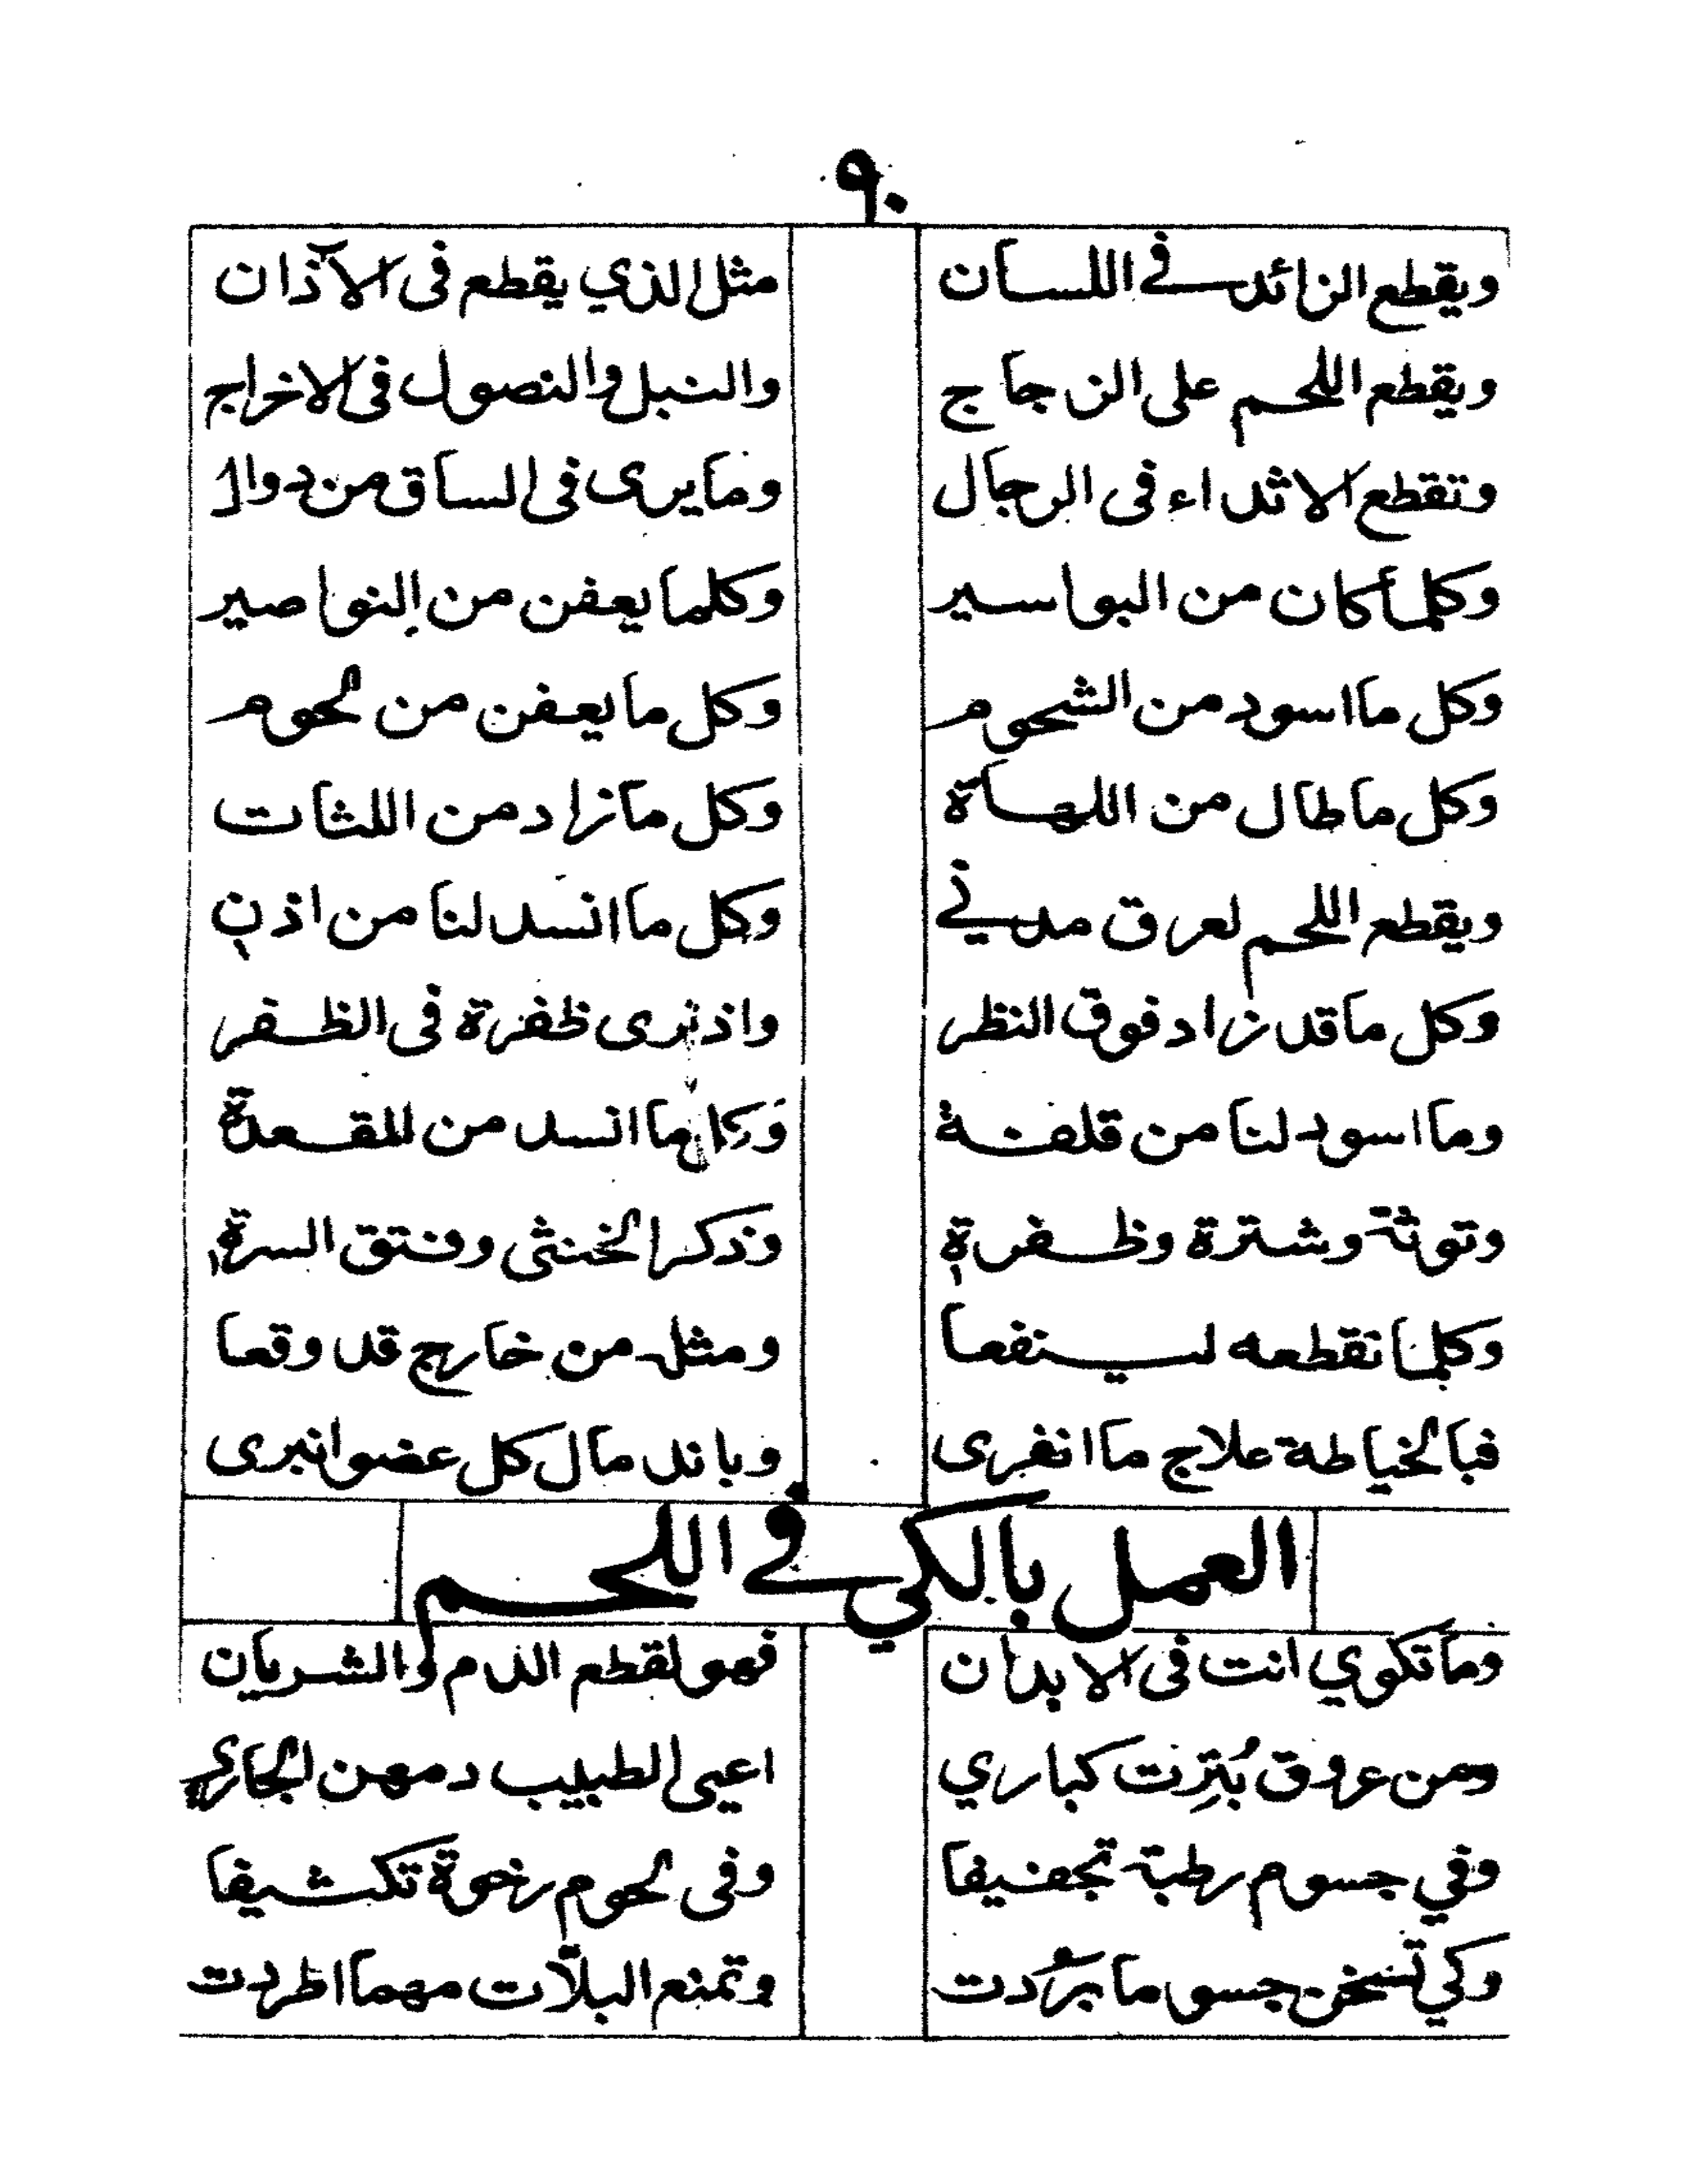 ٩٠
ويقطع الزائد في اللسان مثل الذي يقطع فى الآذان
ويقطع اللحم على الزجاج والنبل والنصول فى الاخراج
وتقطع الاثداء فى الرجال وما يرى فى الساق من دوال
وكلما كان من البواسير وكلما يعفن من النواصير
وكل ما اسود من الشحوم وكل ما يعفن من لحوم
وكل ما طال من اللهاة وكل ما زاد من اللثات
ويقطع اللحم لعرق مدني وكل ما انسد لنا من اذن
وكل ما قد زاد فوق النظر واذ نرى ظفرة فى الظفر
وما اسود لنا من قلفة وكل ما انسد من المقعدة
وتوثة وشترة وظفرة وذكر الخنثى وفتق السرة
وكلما تقطعه لينفعا ومثل من خارج قد وقعا
فبالخياطة علاج ما انفرى وباندمال كل عضو انبرى
العمل بالكي في اللحم
وما تكوي انت فى الابدان فهو لقطع الدم والشريان
ومن عروق بُتِرت كباري اعيى الطبيب دمهن الجاري
وفي جسوم رطبة تجفيفا وفى لحوم رخوة تكثيفا
وكي تسخن جسو ما بردت وتمنع البلآت مهما اطردت